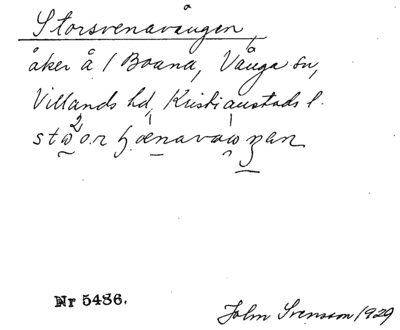 Storsvenavången,
åker å 1 Boana, Vånga sn,
Villands hd, Kristianstads l.
Nr 5486.
John Svensson 1929